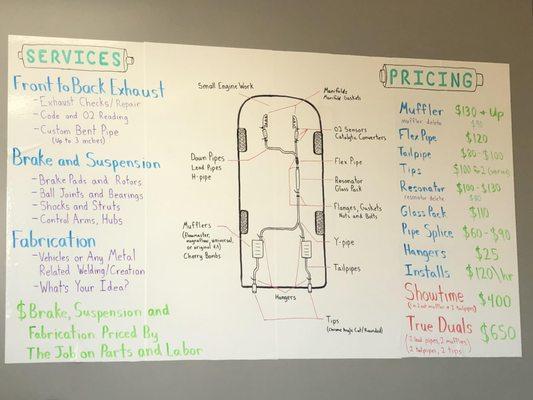 SERVICES
Front to Back Exhaust
- Exhaust Checks/Repair
- Code and O2 Reading
- Custom Bent Pipe
(Up to 3 inches)
Brake and Suspension
- Brake Pads and Rotors
- Ball Joints and Bearings
- Shocks and Struts
- Control Arms, Hubs
Fabrication
- Vehicles or Any Metal
Related Welding/Creation
- What's Your Idea?
$Brake, Suspension and
Fabrication Priced By
The Job on Parts and Labor
Small Engine Work
Manifolds
Manifold Gaskets
O2 Sensors
Catalytic Converters
Down Pipes
Lead Pipes
H-pipe
Flex Pipe
Resonator
Glass Pack
Flanges, Gaskets
Nuts and Bolts
Mufflers
(Flowmaster,
magnaflow, universal,
or original fit)
Cherry Bombs
Y-pipe
Tailpipes
Hangers
Tips
(Chrome Angle Cut/Rounded)
PRICING
Muffler $130 + Up
muffler delete $90
Flex Pipe $120
Tailpipe $80-$100
Tips
Resonator $100-$130
resonator delete $80
Glass Pack $110
Pipe Splice $60-$90
Hangers $25
Installs $120\hr
Showtime $400
True Duals $650
(2 lead pipes, 2 mufflers)
(2 tailpipes, 2 tips)